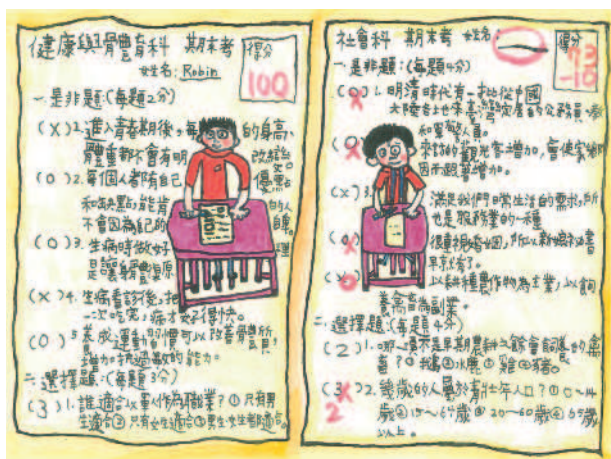 健康與體育科 期末考
得分
100
姓名: Robin
一.是非題:(每題2分)
(X)1.進入青春期後,每 的身高、
體重都不會有明 改變。
(O)2.每個人都有自己 優點
和缺點,的
不會因為自己的
(O)3.生病時做好 理
是讓身體復原
(X)4.生病看診後,把
一次吃完,病才好得快。
(O)5.養成運動習慣可以改善體質,
增加抗過敏的能力。
二.選擇題:(每題3分)
(3)1.誰適合以軍人作為職業?①只有男
生適合②只有女生適合③男生女生都適合。
社會科 期末考 姓名:
得分
73
-10
一.是非題:(每題4分)
(O)1.明清時代有一批從中國
大陸
和軍警人員。
(O) 來訪的觀光客增加,會使家鄉
因而 增加。
(X)3. 滿足我們日常生活的需求,所
也是服務業的一種
(O) 很重視婚姻,所以新婚
早就
(X) 以耕種農作物為主業,以飼
養禽畜為副業。
二.選擇題:(每題4分)
(2)1.哪一項不是早期農耕之餘會飼養的禽
畜?①鵝②水鹿③雞④豬。
(3)2.幾歲的人屬於青壯年人口?①0~14
2
歲②15~64歲③20~60歲④65歲
以上。